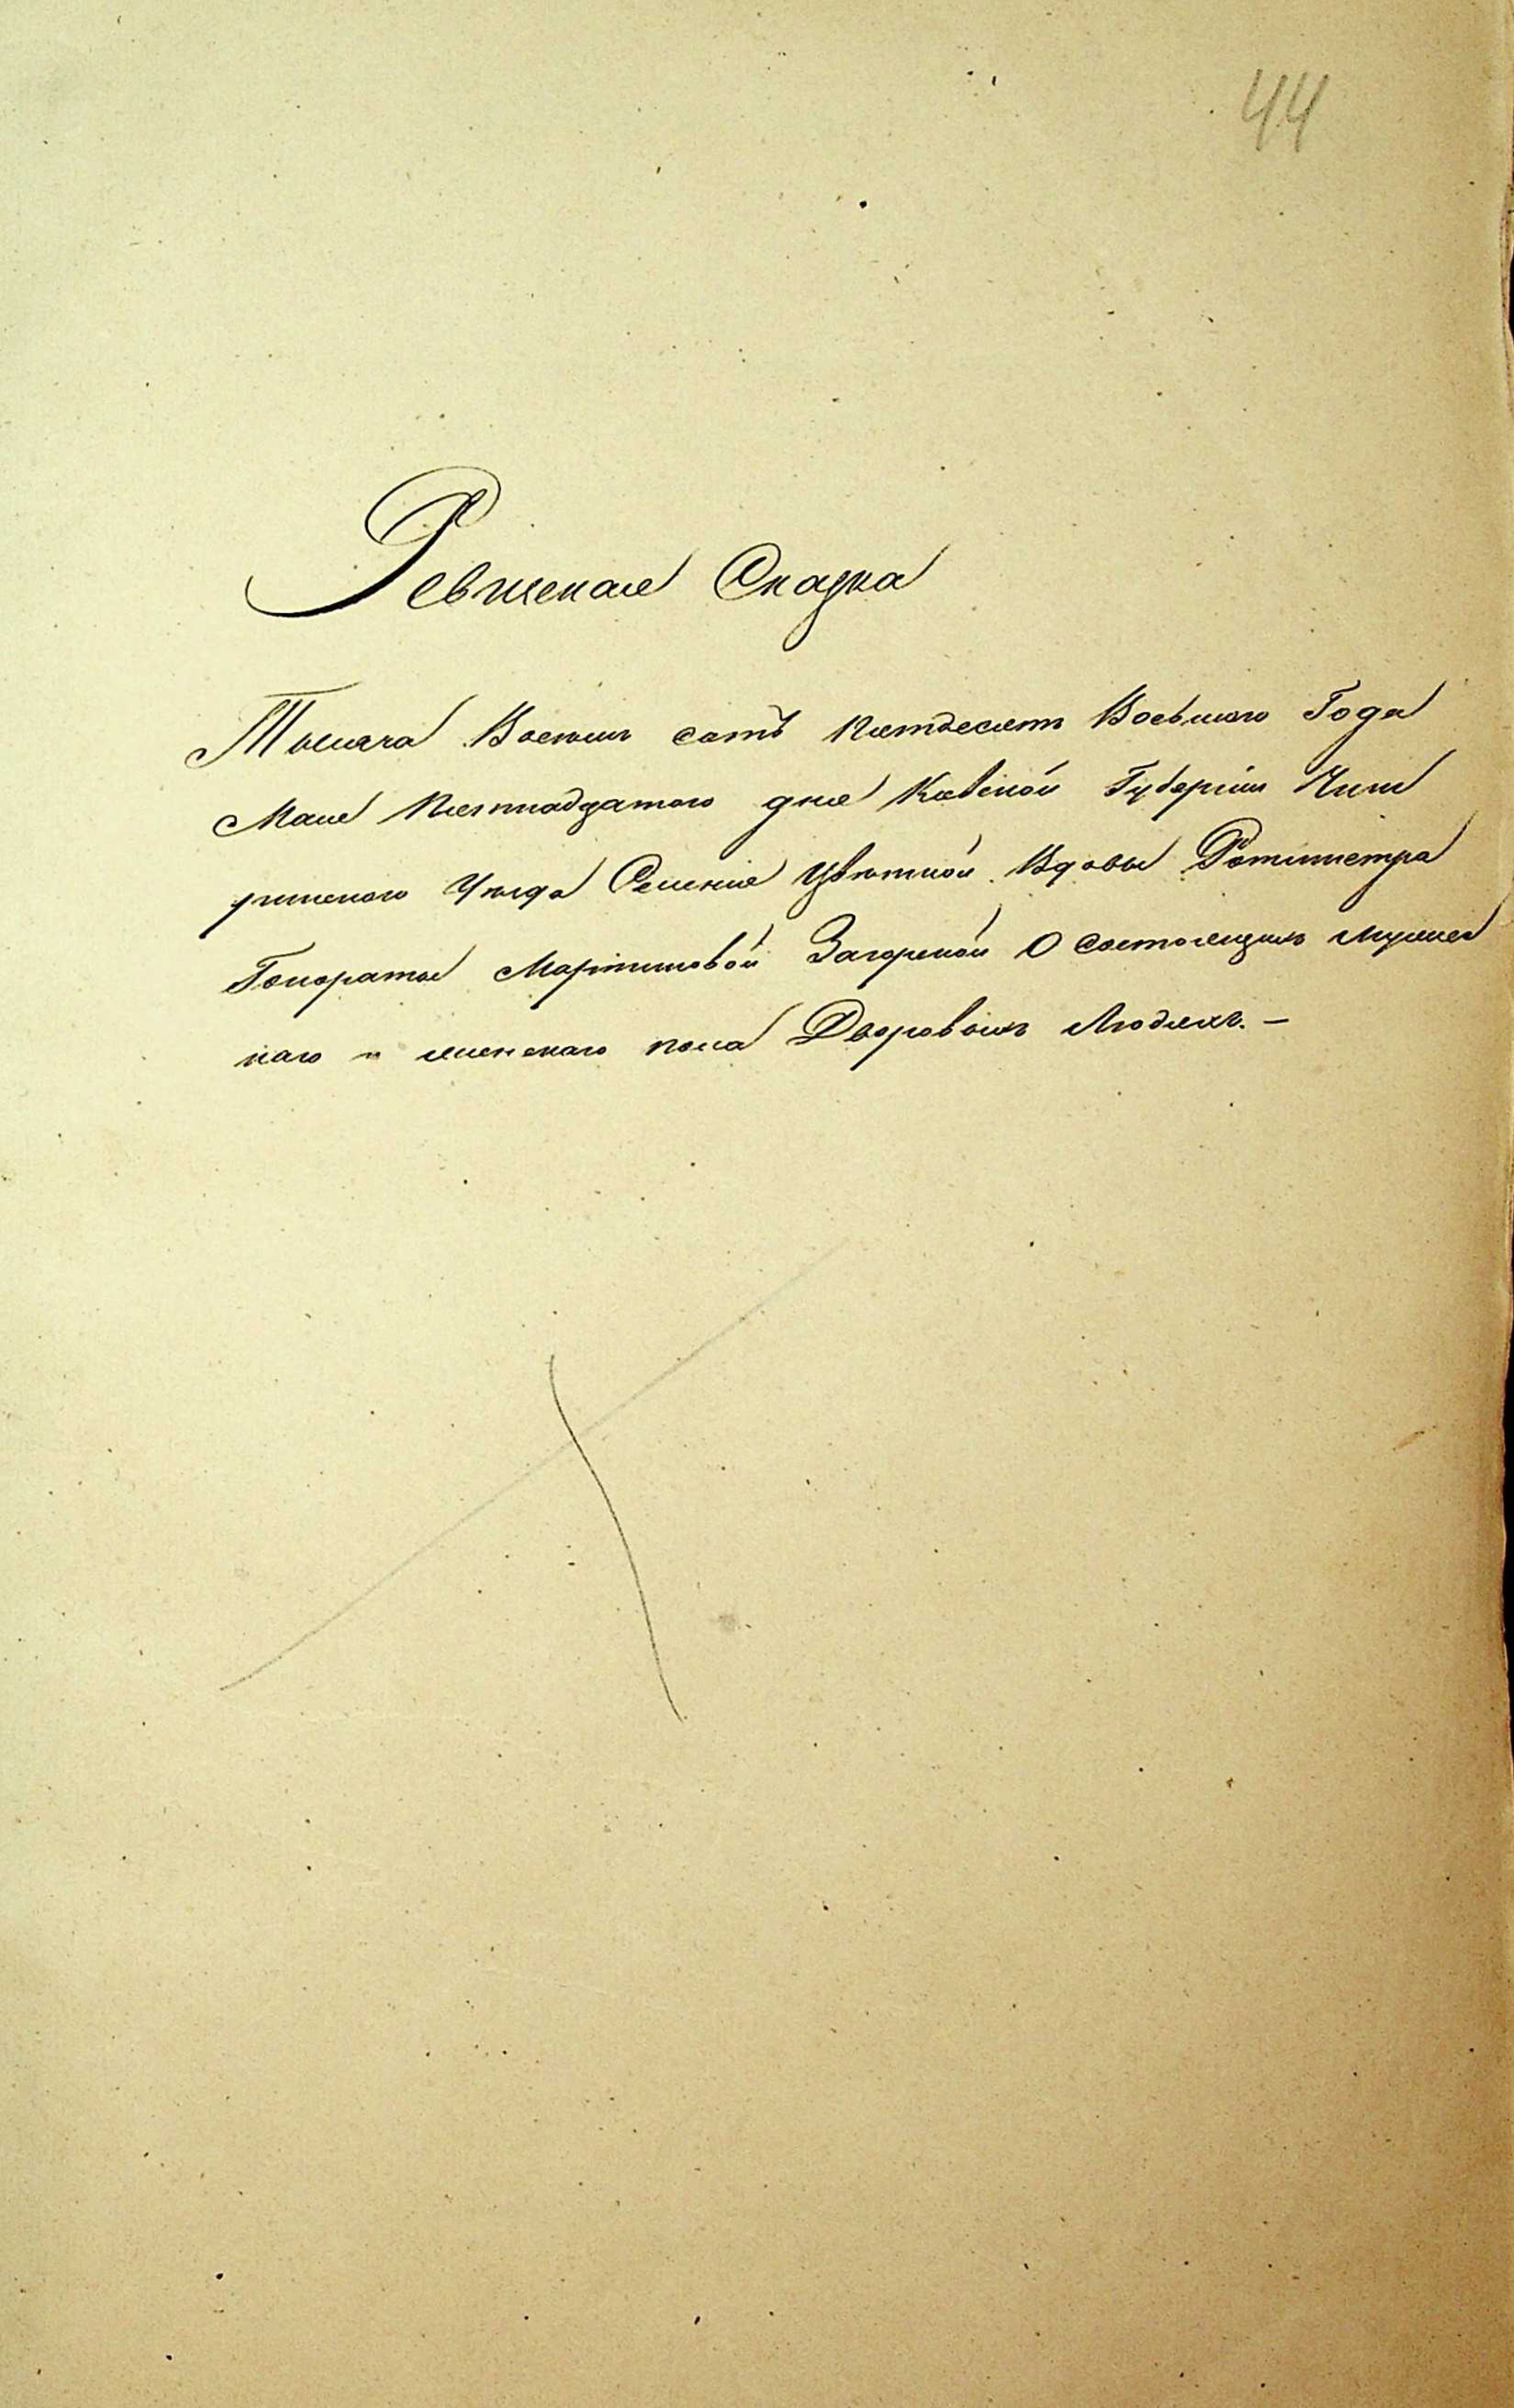 44
Ревизская Сказка
Тысяча Восемь сотъ Пятдесятъ Восьмого Года
Мая Пятнадцатого дня Киевской Губерніи Чиги
ринского Уезда Селенія Цвѣтной Вдовы Ротмистра
Гонораты Мартиновой Загорской О состоящихъ мужеск
каго и женскаго пола Дворовыхъ Людяхъ. —